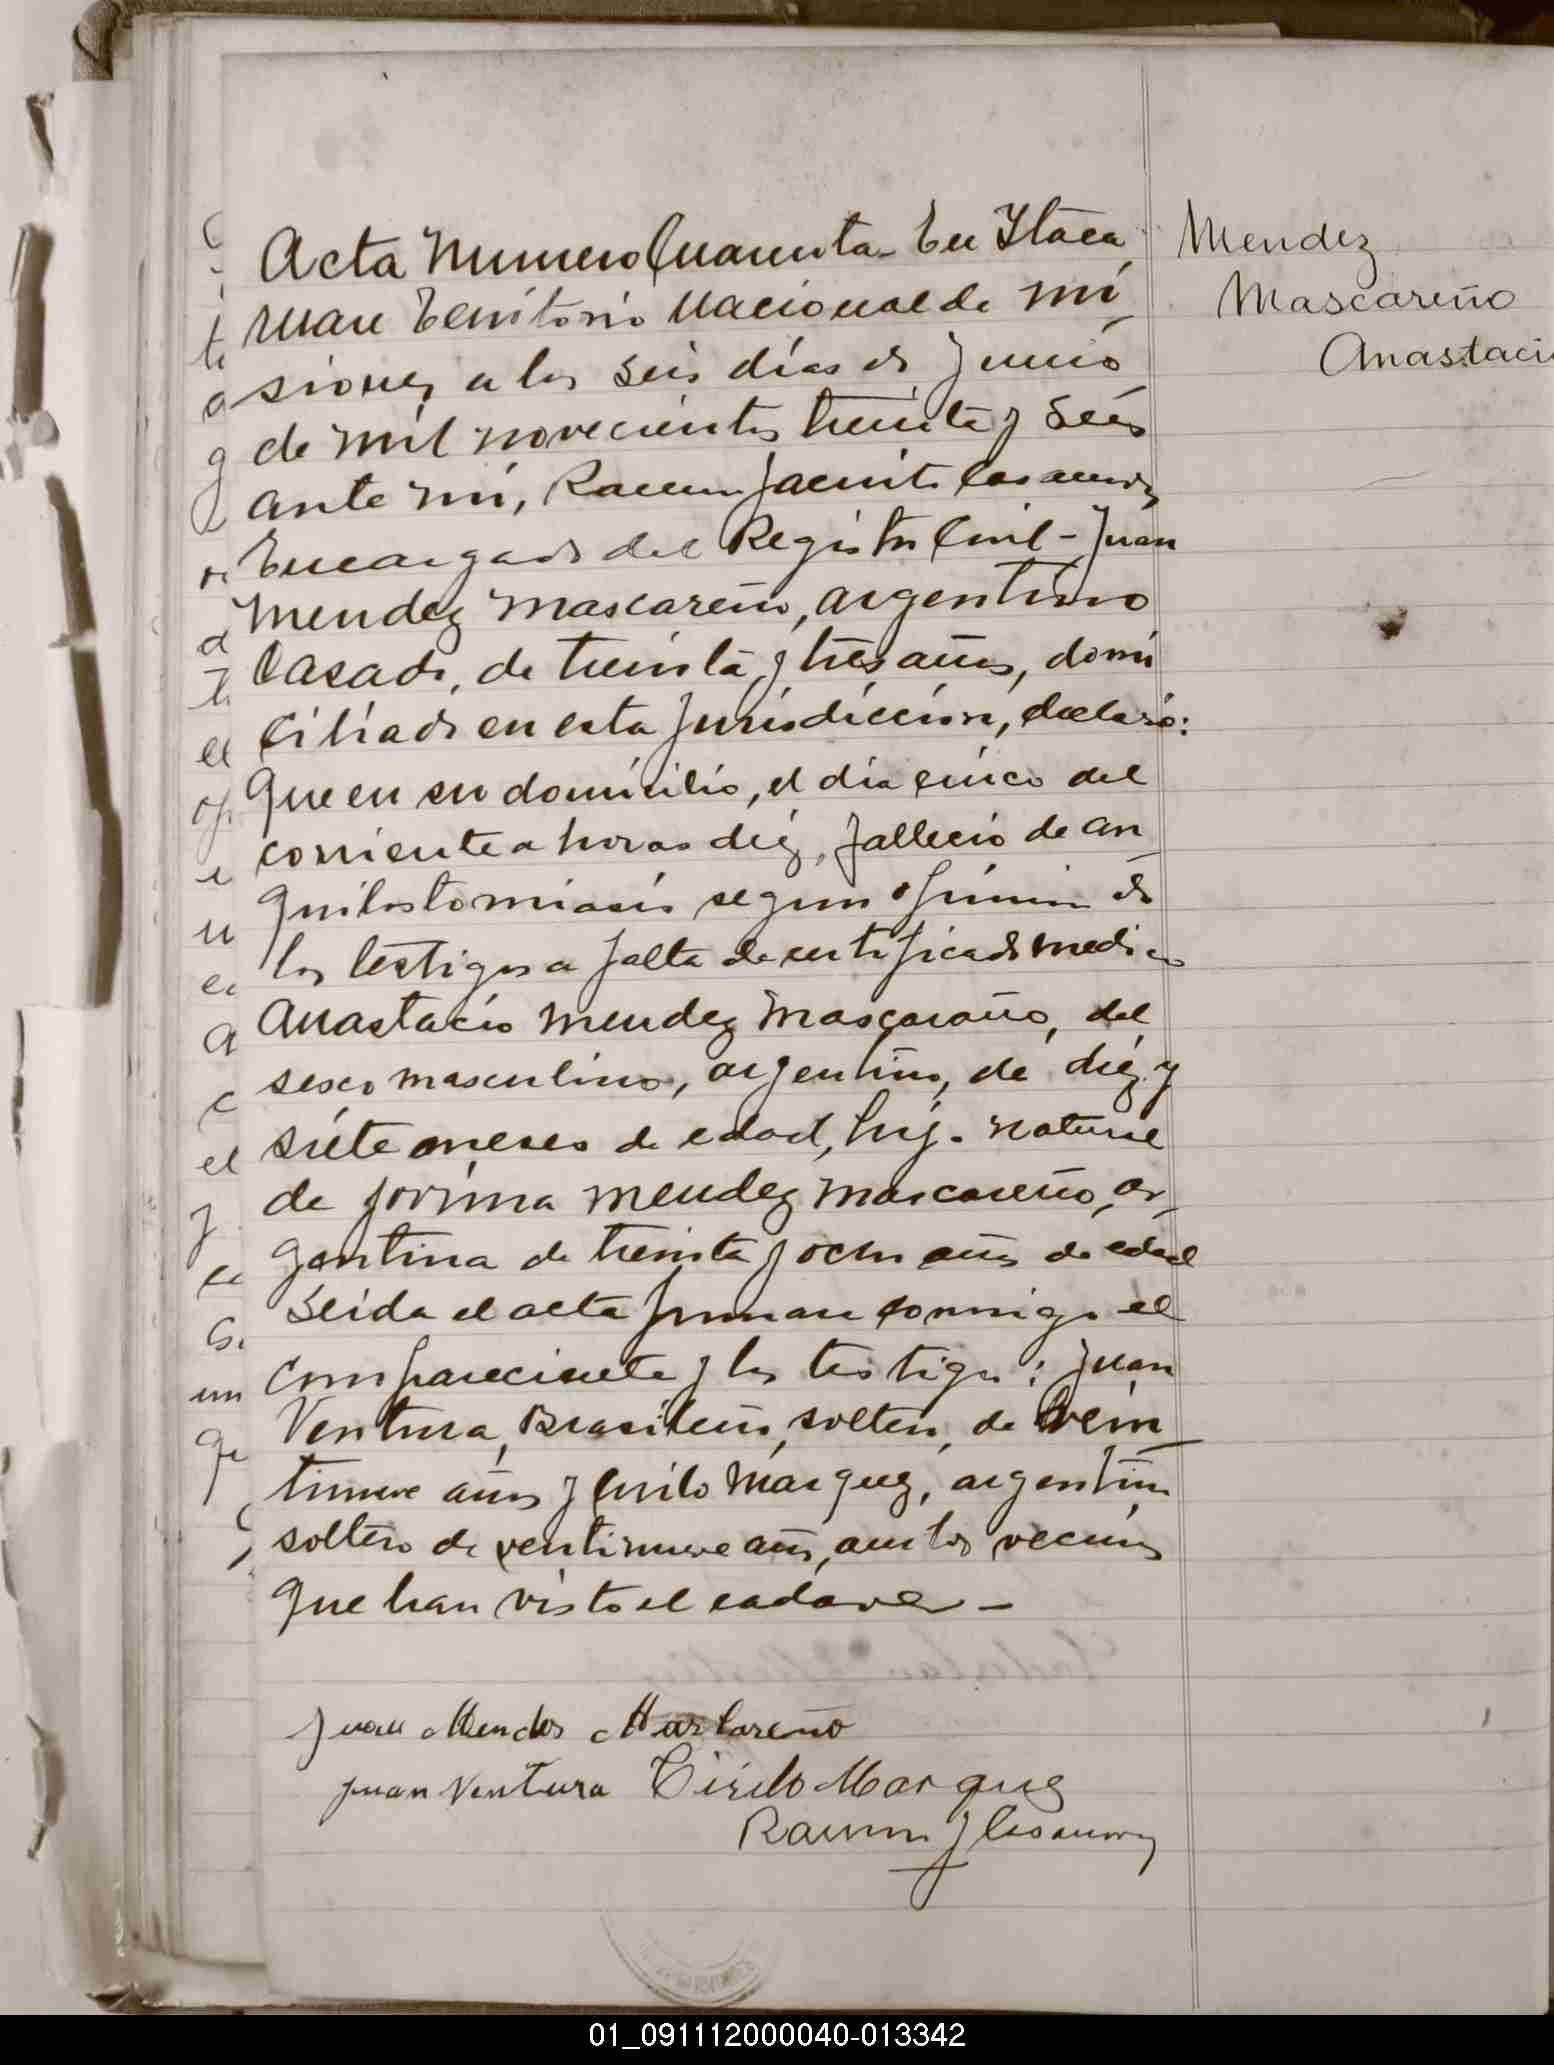 Acta Numero Cuarenta - En Itaca
ruare Territorio Nacional de Mi
siones, a los seis días de Junio
de mil novecientos treinta y seis
ante mí, Ramon Jacinto
Encargado del Registro Civil - Juan
Mendez Mascareño, argentino
casado, de treinta y tres años, domi
ciliado en esta Jurisdicción, declaró:
Que en su domicilio, el día cinco del
corriente a horas diéz, falleció de an
quilostomiasis segun opinion de
los testigos a falta de certificado medico
Anastacio Mendez Mascareño, del
sexo masculino, argentino, de diéz y
siete meses de edad, hijo natural
de Jovina Mendez Mascareño, ar
gentina de treinta y ocho años de edad
Leida el acta firman conmigo el
compareciente y los testigos: Juan
Ventura, Brasileño, soltero, de vein
tinueve años y Cirilo Marquez, argentino
soltero de ventinueve años, ambos vecinos
que han visto el cadaver -
Juan Mendes Mascareño
Juan Ventura Cirilo Marquez
Ramon J
Mendez
Mascareño
Anastacio
01_091112000040-013342